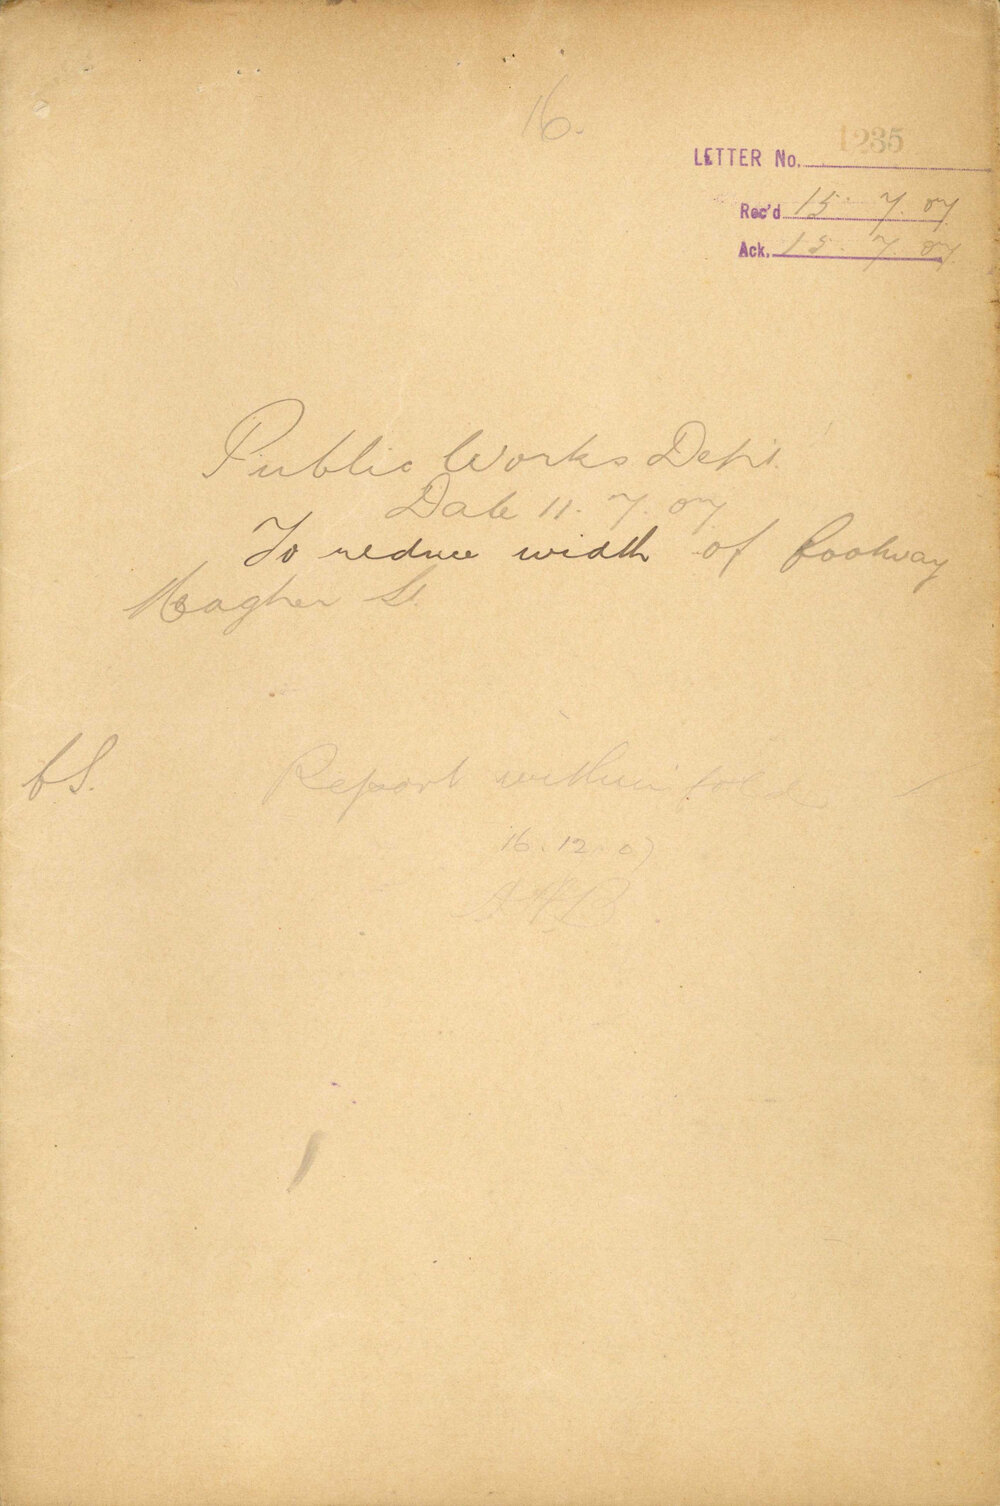 16.
LETTER No. 1235
Rec'd 15. 7. 07
Ack. 15. 7. 07.
Public Works Dept.
Date 11. 7. 07
To reduce width of footway
Meagher St.
Report within
16. 12. 07